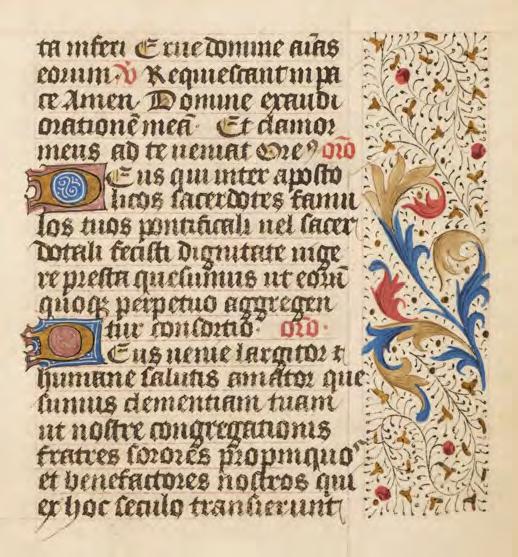 ta inferi Erue domine aīas
eorum. ℣ Requiescant in pa
ce Amen Domine exaudi
orationē meā· Et clamor
meus ad te ueniat Oreꝰ oro
Deus qui inter aposto
licos sacerdotes famu
los tuos pontificali uel sacer
dotali fecisti dignitate uige
re presta quesumus ut eorū
quoqꝫ perpetuo aggregen
tur consortio· oro·
Deus uenie largitor ⁊
humane salutis amator que
sumus clementiam tuam
ut nostre congregationis
fratres sorores propinquoˢ
et benefactores nostros qui
ex hoc seculo transierunt